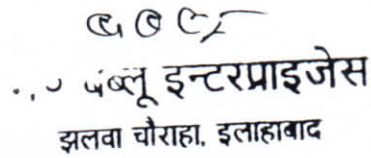 इन्टरप्राइजेस
झलवा चौराहा, इलाहाबाद